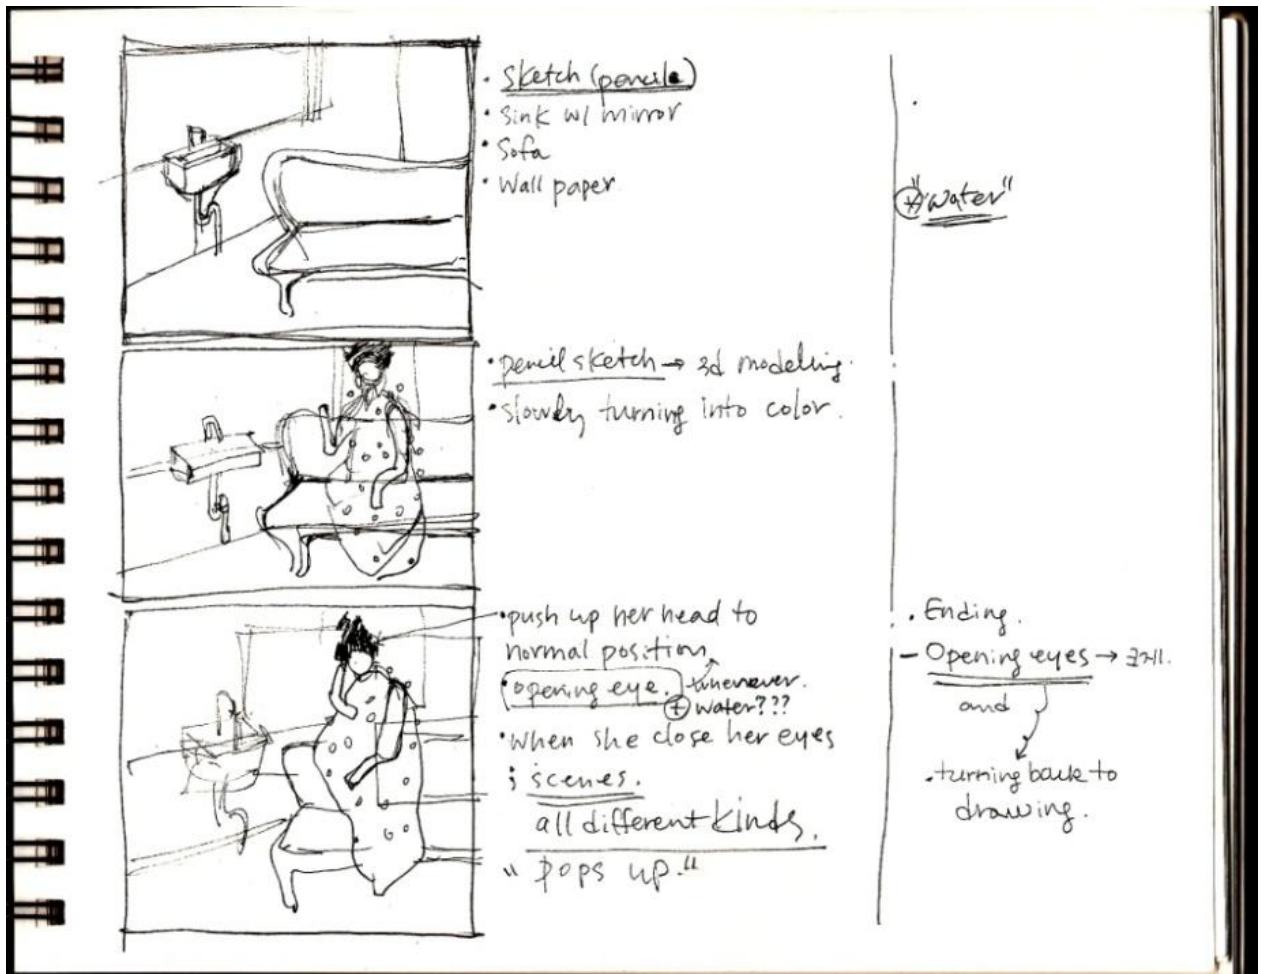 • Sketch (pencil)
• Sink w/ mirror
• Sofa
• Wall paper
"water"
• pencil sketch → 3d modelling.
• slowly turning into color.
• push up her head to
normal position
• opening eye. whenever.
water???
• When she close her eyes
; scenes.
all different kinds.
"pops up."
• Ending.
– Opening eyes → 크게.
and
• turning back to
drawing.